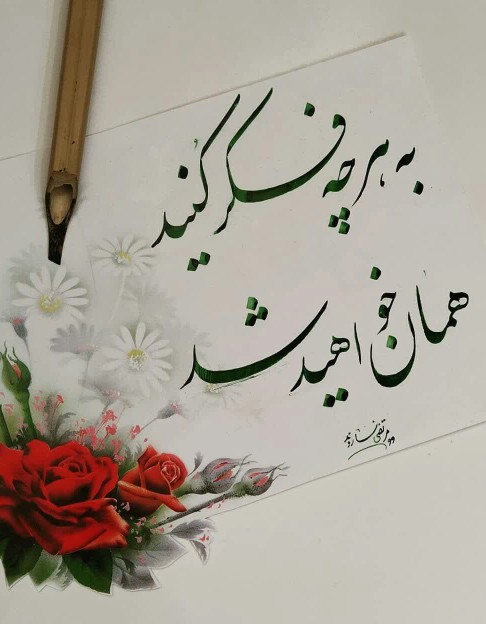 به هر چه فکر کنید
همان خواهید شد